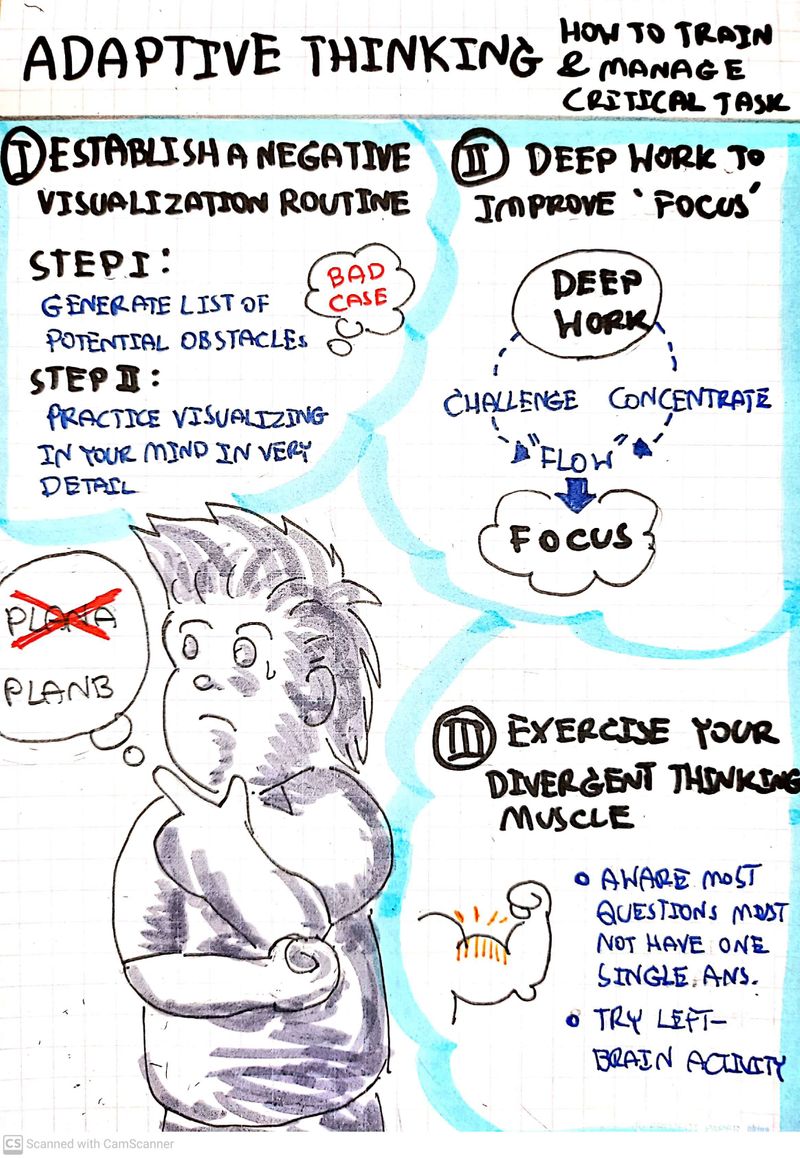 ADAPTIVE THINKING
HOW TO TRAIN
& MANAGE
CRITICAL TASK
I ESTABLISH A NEGATIVE
VISUALIZATION ROUTINE
STEP I:
GENERATE LIST OF
POTENTIAL OBSTACLES
BAD
CASE
STEP II:
PRACTICE VISUALIZING
IN YOUR MIND IN VERY
DETAIL
II DEEP WORK TO
IMPROVE 'FOCUS'
DEEP
WORK
CHALLENGE CONCENTRATE
"FLOW"
FOCUS
PLAN A
PLAN B
III EXERCISE YOUR
DIVERGENT THINKING
MUSCLE
AWARE MOST
QUESTIONS MUST
NOT HAVE ONE
SINGLE ANS.
TRY LEFT-
BRAIN ACTIVITY
CS Scanned with CamScanner